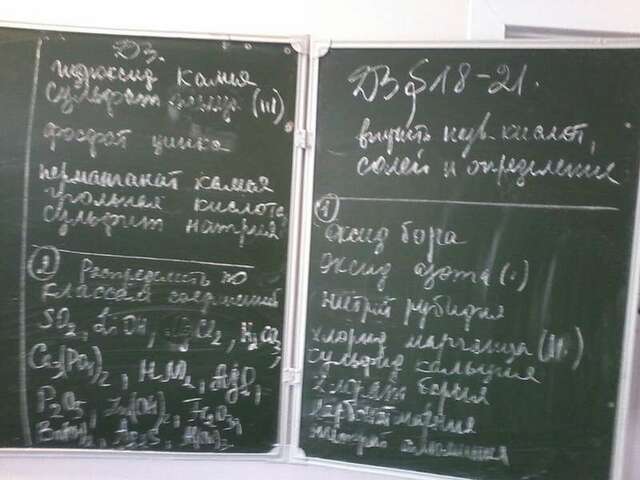 ДЗ.
гидроксид калия
сульфат (III)
фосфат цинка
перманганат калия
угольная кислота
сульфит натрия
② Распределить по
классам соединений
SO₂, LiOH, Cl₂, H₂CO₃
Ca₃(PO₄)₂, HNO₂,
P₂O₅, Zn(OH)₂, Fe₂O₃,
ДЗ § 18-21.
выучить назв. кислот,
солей и определение
①
оксид бора
оксид азота (I)
нитрид рубидия
хлорид марганца (II)
сульфид кальция
бария
карбонат магния
нитрат алюминия